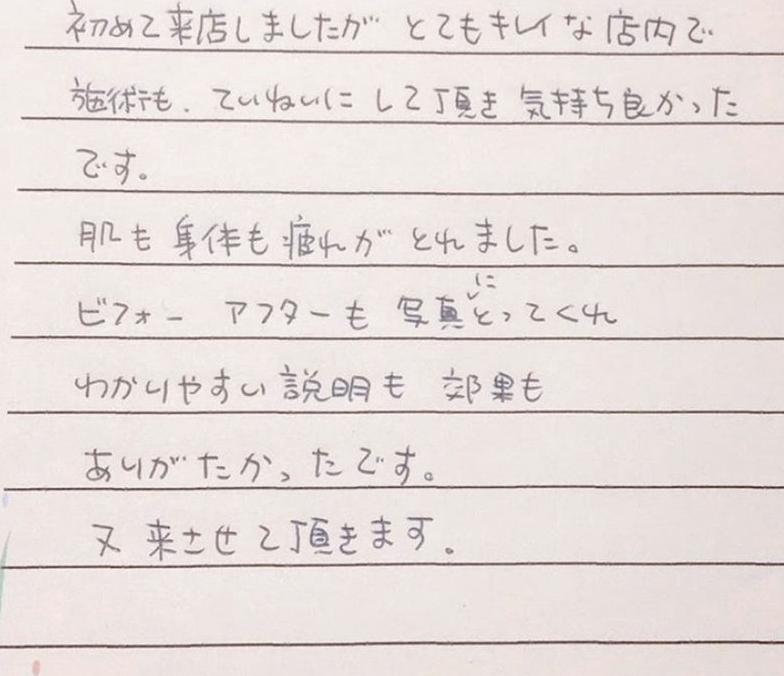 初めて来店しましたが とてもキレイな店内で
施術も、ていねいにして頂き 気持ち良かった
です。
肌も身体も疲れがとれました。
ビフォーアフターも 写真にとってくれ
わかりやすい説明も 効果も
ありがたかったです。
又 来させて頂きます。